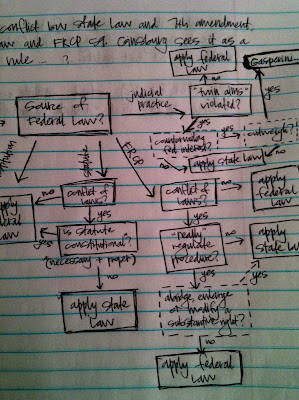 conflict btw state law and 7th amendment,
law and FRCP 59. Ginsburg sees it as a
rule ... ?
apply federal
law
Gasperini
source of
Federal Law?
judicial
practice
"twin aims"
violated?
no
yes
countervailing
fed interest?
yes
outweigh?
yes
no
no
apply state law
statute
FRCP
no
conflict of
laws?
conflict of
laws?
no
apply
federal
law
apply
federal
law
yes
yes
yes
is statute
constitutional?
(necessary + proper)
"really"
regulate
procedure?
no
apply
state law
no
yes
yes
apply state
law
abridge, enlarge
or modify a
substantive right?
no
apply federal
law